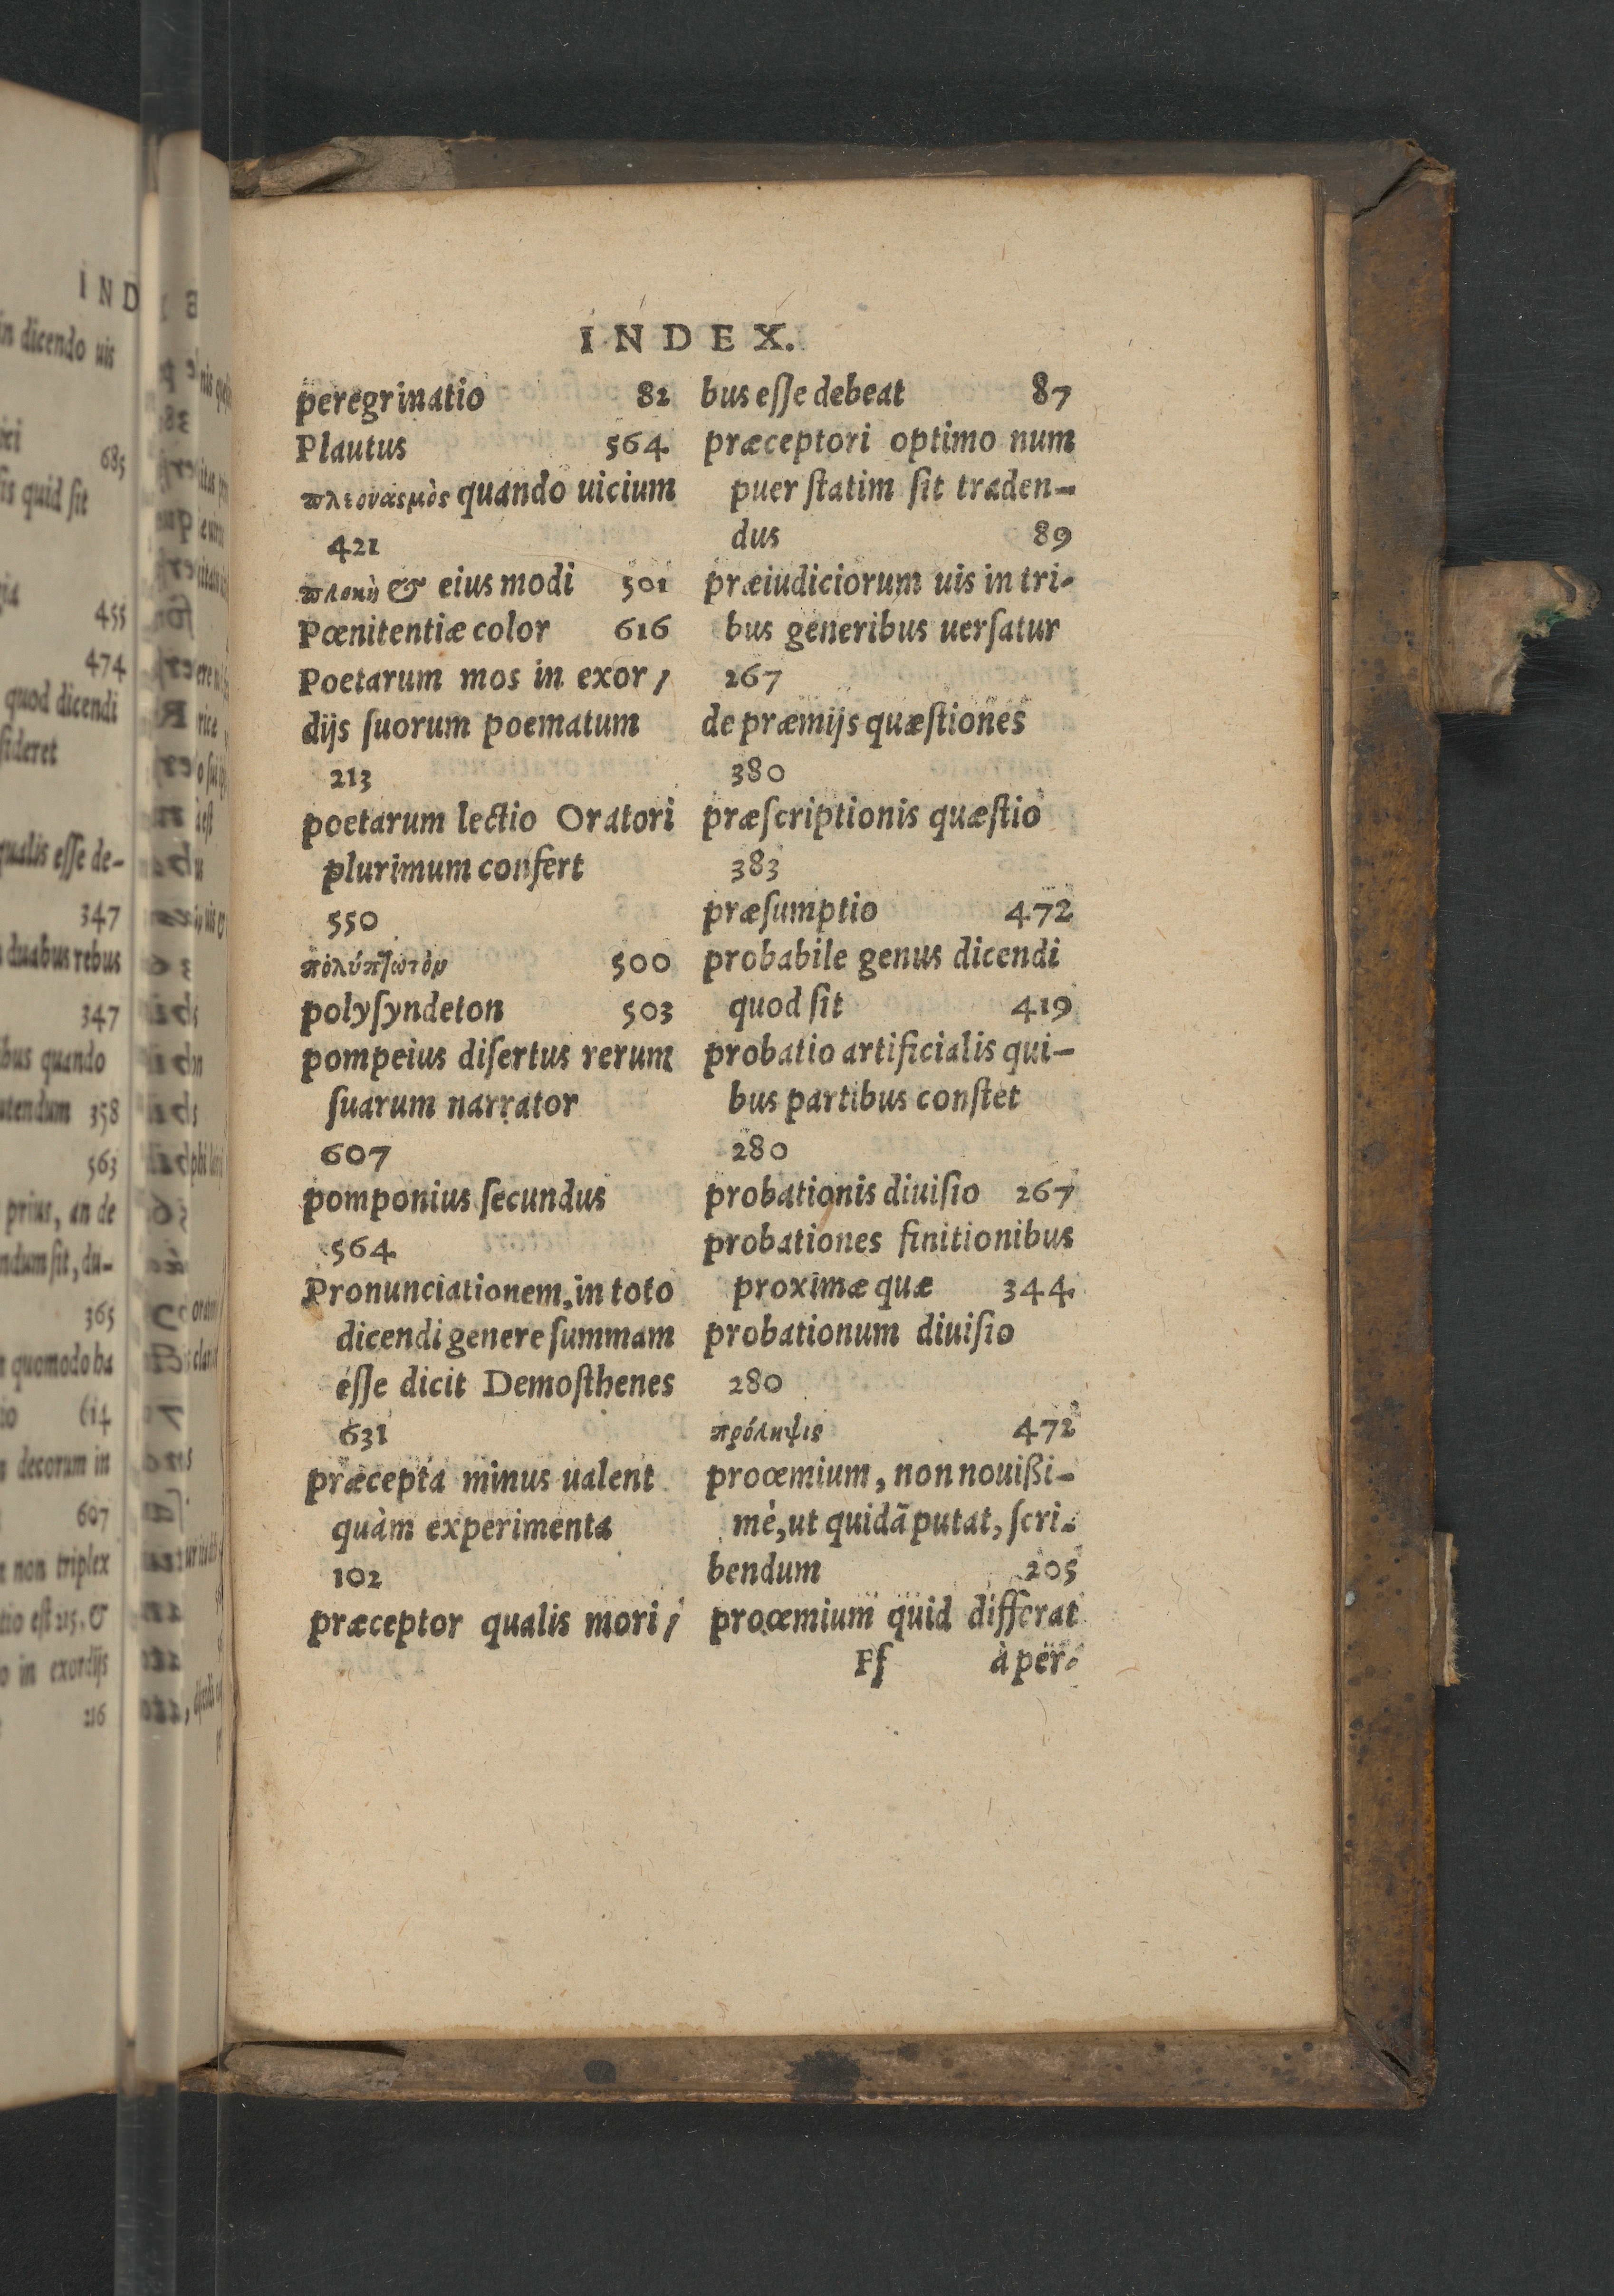 INDEX.
peregrinatio 82
Plautus 564
πλεονασμὸς quando uicium
421
πλοκὴ & eius modi 501
Pœnitentiæ color 616
Poetarum mos in exor/
dijs ſuorum poematum
213
poetarum lectio Oratori
plurimum confert
550
πολύπτωτὸν 500
polyſyndeton 503
pompeius diſertus rerum
ſuarum narrator
607
pomponius ſecundus
564
Pronunciationem, in toto
dicendi genere ſummam
eſſe dicit Demoſthenes
631
præcepta minus ualent
quàm experimenta
102
præceptor qualis mori/
bus eſſe debeat 87
præceptori optimo num
puer ſtatim ſit traden-
dus 89
præiudiciorum uis in tri-
bus generibus uerſatur
267
de præmijs quæſtiones
380
præſcriptionis quæſtio
383
præſumptio 472
probabile genus dicendi
quod ſit 419
probatio artificialis qui-
bus partibus conſtet
280
probationis diuiſio 267
probationes finitionibus
proximæ quæ 344
probationum diuiſio
280
πρόληψις 472
proœmium, non nouißi-
mè, ut quidã putat, ſcri-
bendum 205
proœmium quid differat
Ff à per-
IND
in dicendo uis
685
quid ſit
455
474
quod dicendi
ſideret
qualis eſſe de-
347
duabus rebus
347
bus quando
utendum 358
563
prius, an de
ndum ſit, du-
365
quomodo ba
614
decorum in
607
non triplex
tio eſt 215. &
in exordijs
216